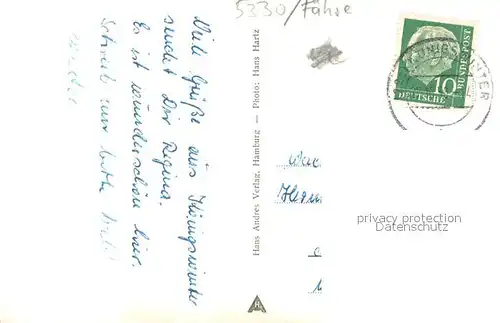 5330/Fähre
Viele Grüße aus Königswinter
sendet Dir Regina.
Es ist wunderschön hier.
Schreib mir bitte
wieder
Hans Andres Verlag, Hamburg — Photo: Hans Hartz
DEUTSCHE BUNDESPOST
10
KÖNIGSWINTER
privacy protection
Datenschutz